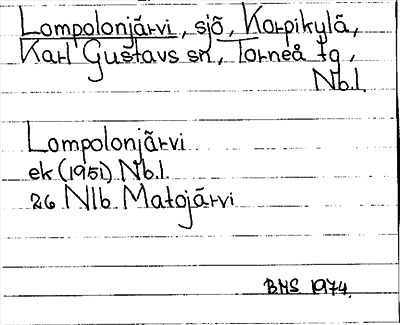 Lompolonjärvi, sjö, Korpikylä,
Karl Gustavs sn, Torneå tg,
Nb.l.
Lompolonjärvi
ek (1951) Nb.l.
26 Nlb Matojärvi
BHS 1974.